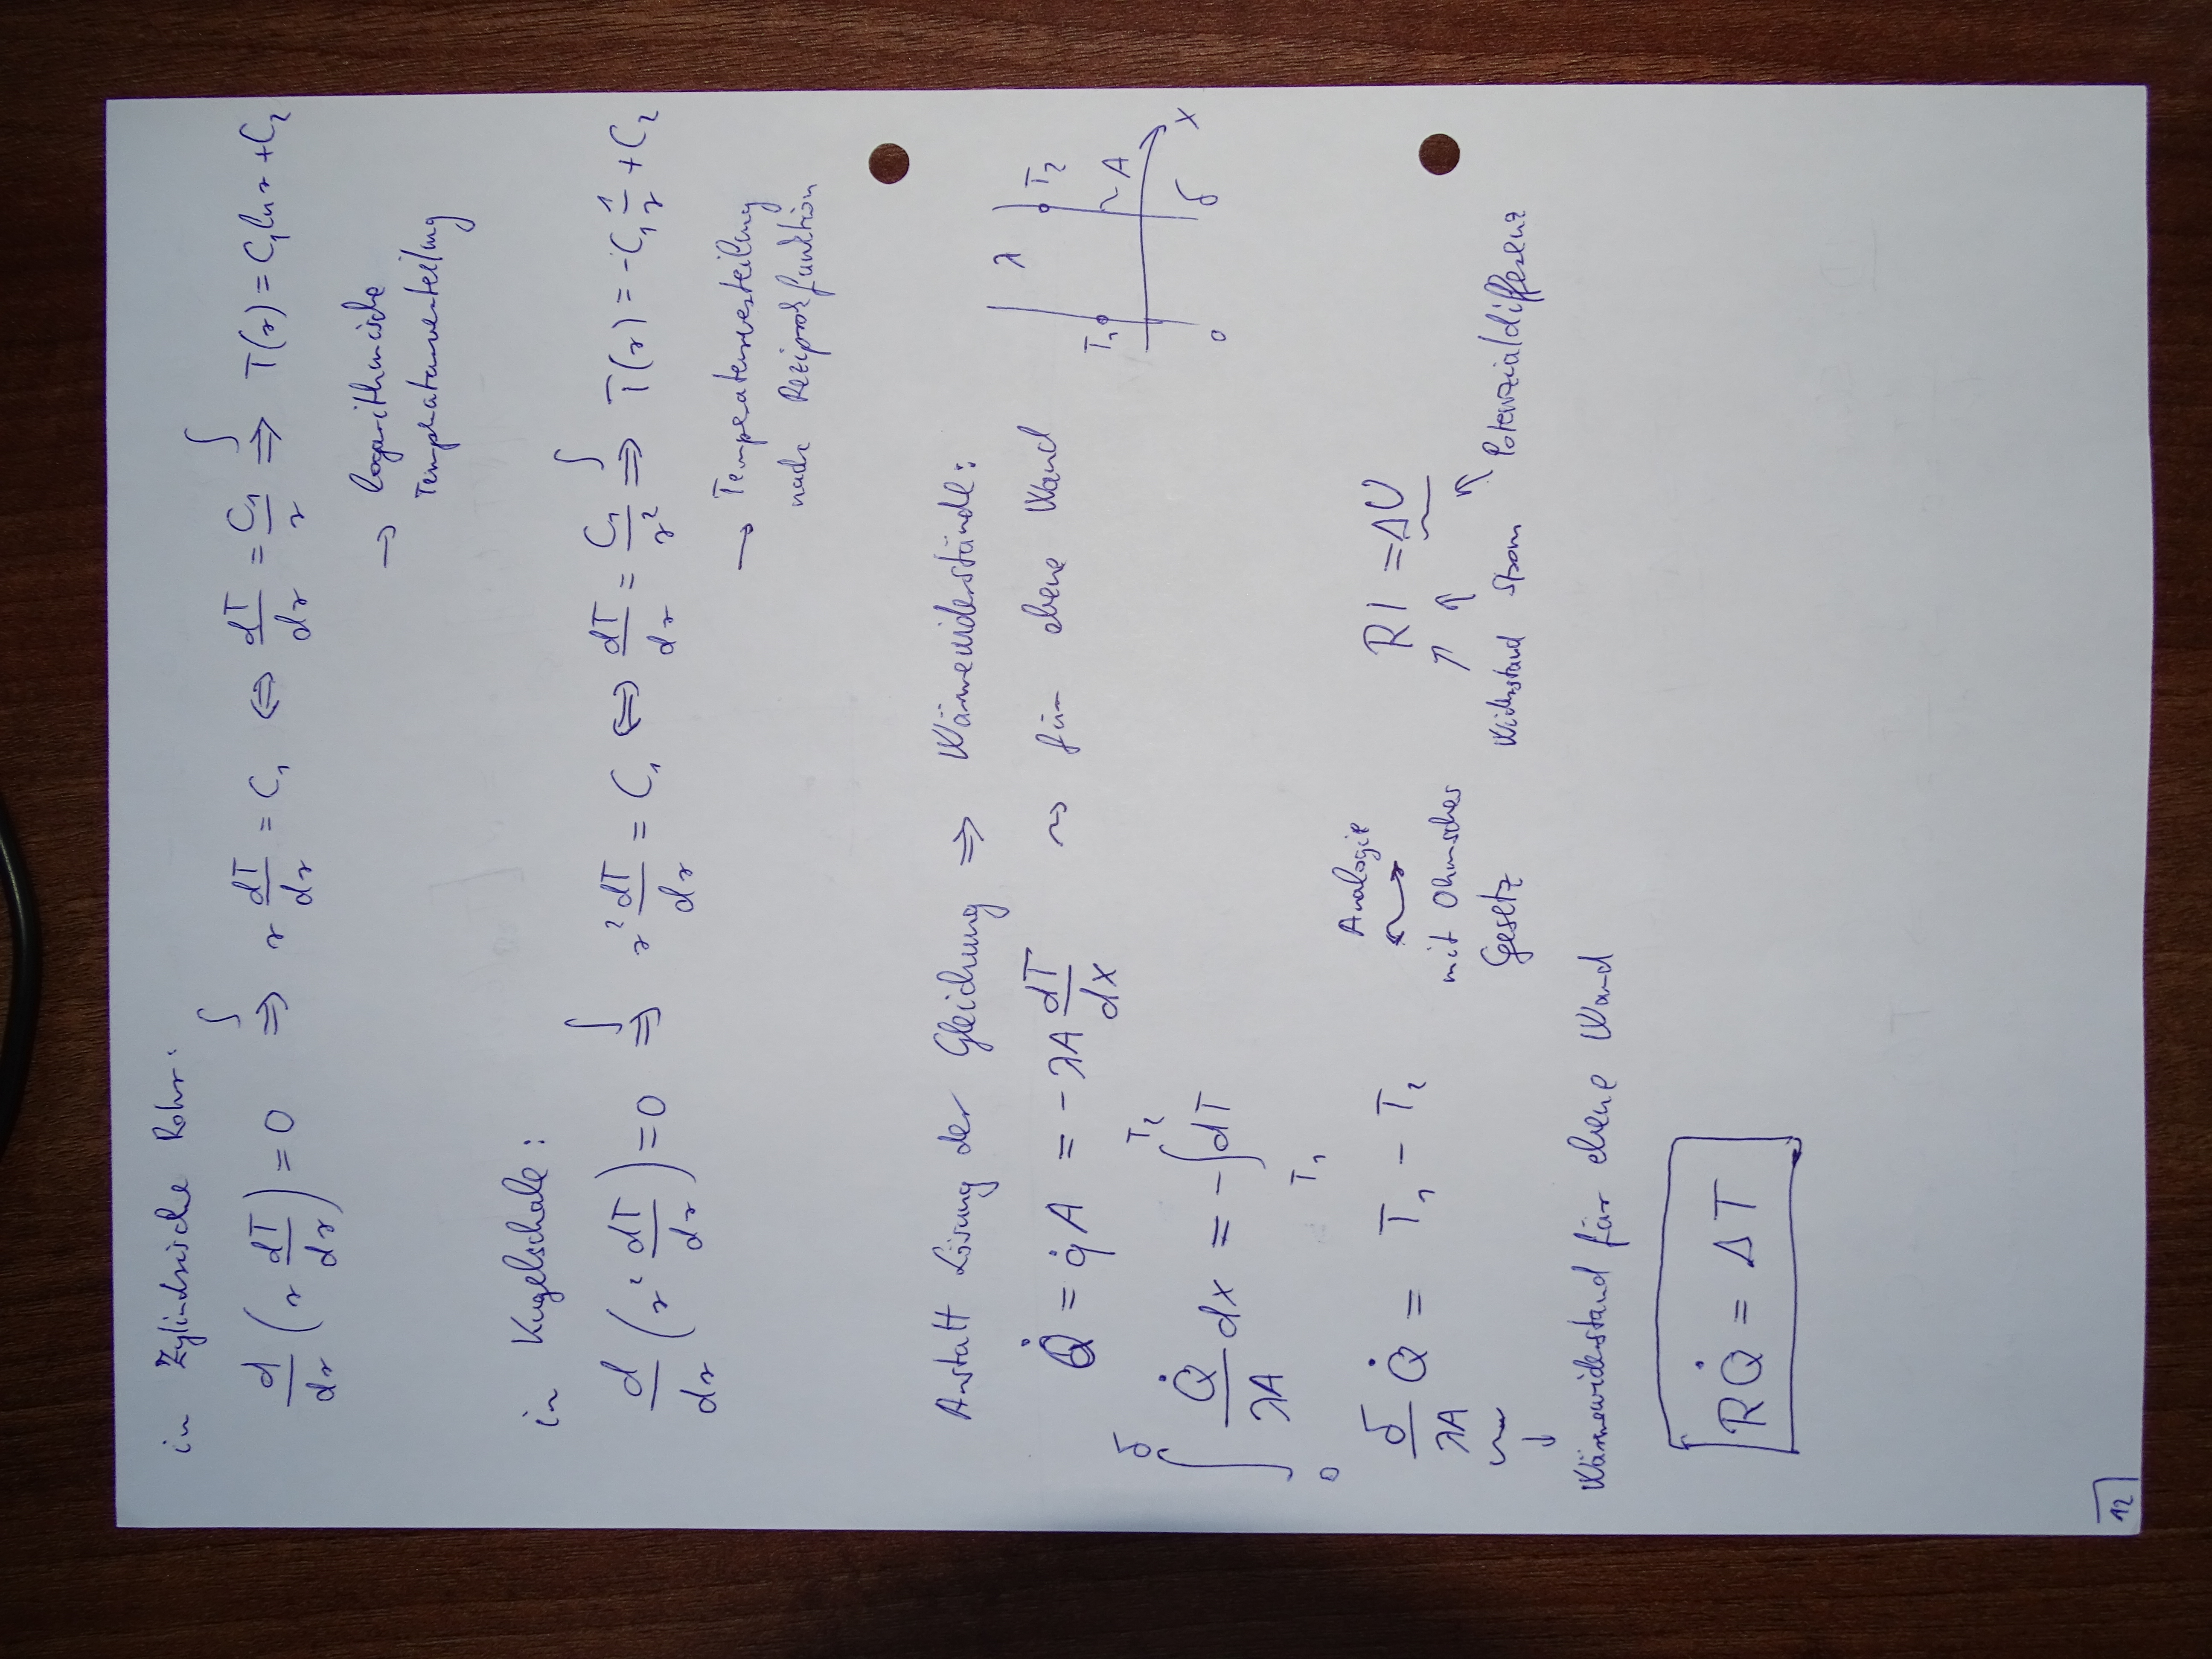 in Zylindrische Rohr:
d/dr (r dT/dr) = 0 ∫⇒ r dT/dr = C₁ ⇔ dT/dr = C₁/r ∫⇒ T(r) = C₁ ln r + C₂
→ logarithmische
Temperaturverteilung
in Kugelschale:
d/dr (r² dT/dr) = 0 ∫⇒ r² dT/dr = C₁ ⇔ dT/dr = C₁/r² ∫⇒ T(r) = -C₁ 1/r + C₂
→ Temperaturverteilung
nach Reziprokfunktion
Anstatt Lösung der Gleichung ⇒ Wärmewiderstände:
Q̇ = q̇ A = - λA dT/dx ~> für ebene Wand
λ
T₁ T₂
~A
0 δ x
∫₀^δ Q̇/λA dx = - ∫_T₁^T₂ dT
δ/λA Q̇ = T₁ - T₂
Analogie
mit Ohmsches
Gesetz
RI = ΔU
Widerstand Strom Potenzialdifferenz
↓
Wärmewiderstand für ebene Wand
RQ̇ = ΔT
12